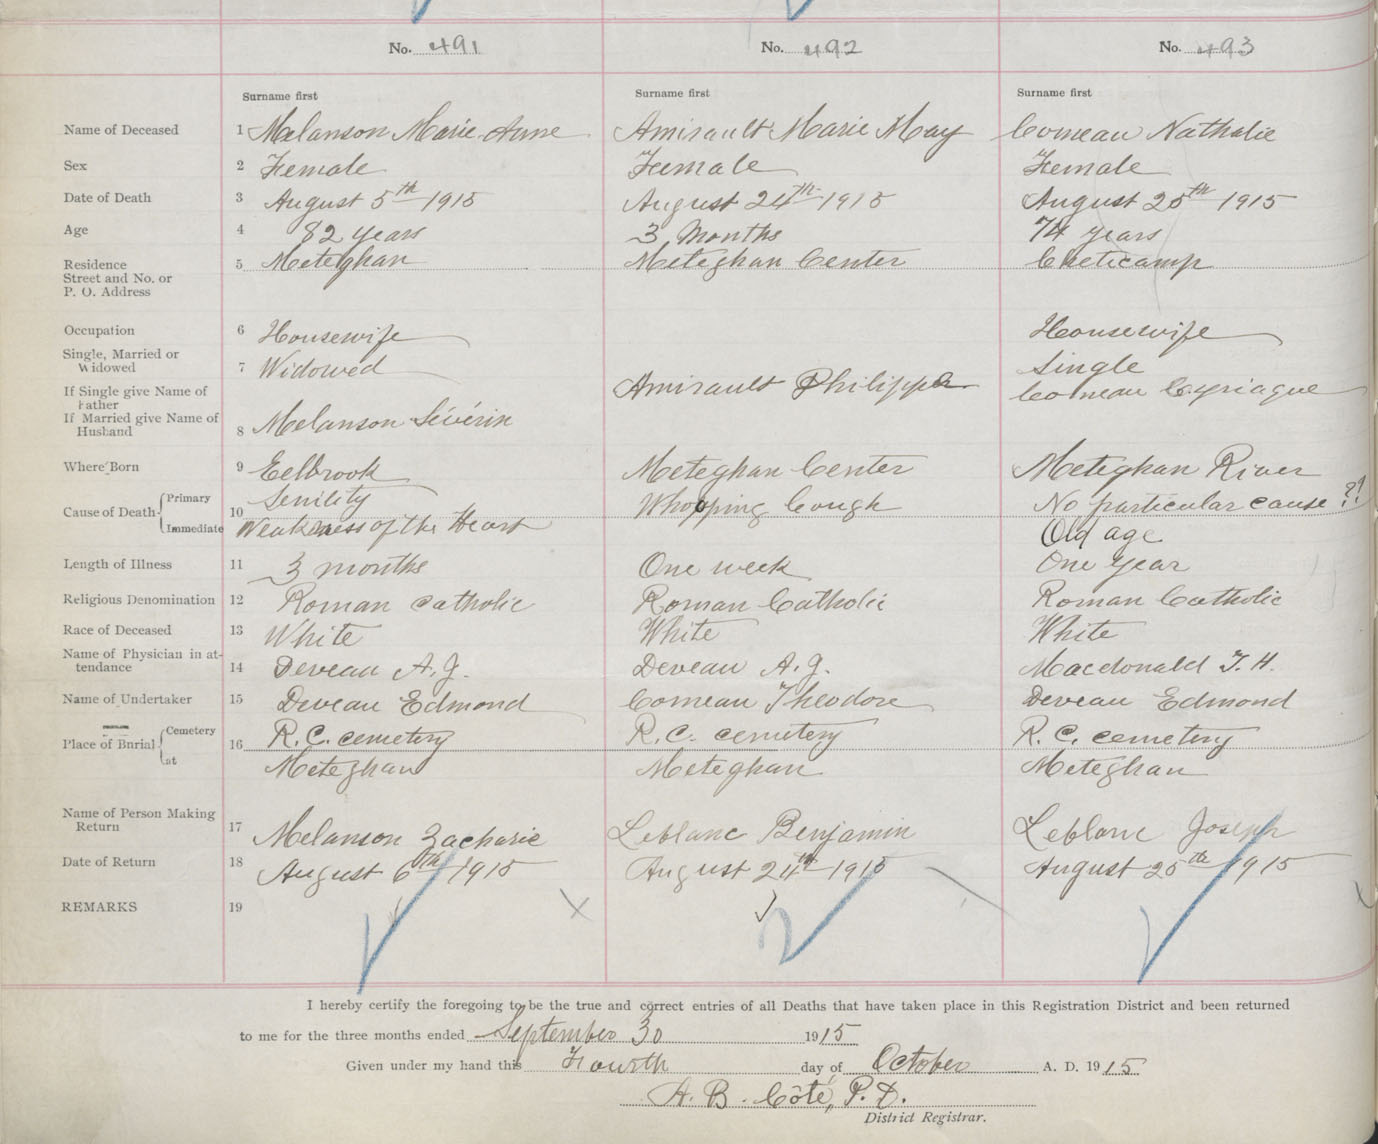 No. 491 No. 492 No. 493
Surname first Surname first Surname first
Name of Deceased 1 Melanson Marie Anne Amirault Marie May Comeau Nathalie
Sex 2 Female Female Female
Date of Death 3 August 5th 1915 August 24th 1915 August 25th 1915
Age 4 82 years 3 Months 74 years
Residence 5 Meteghan Meteghan Center Cheticamp
Street and No. or
P. O. Address
Occupation 6 Housewife Housewife
Single, Married or
Widowed 7 Widowed Single
If Single give Name of
Father Amirault Philippe Comeau Cyriaque
If Married give Name of
Husband 8 Melanson Sévérin
Where Born 9 Eelbrook Meteghan Center Meteghan River
Cause of Death Primary 10 Senility Whopping Cough No particular cause ??
Immediate Weakness of the Heart Old age
Length of Illness 11 3 months One week One Year
Religious Denomination 12 Roman Catholic Roman Catholic Roman Catholic
Race of Deceased 13 White White White
Name of Physician in at-
tendance 14 Deveau A. J. Deveau A. J. Macdonald T. H.
Name of Undertaker 15 Deveau Edmond Comeau Theodore Deveau Edmond
Place of Burial Cemetery 16 R. C. cemetery R. C. cemetery R. C. cemetery
at Meteghan Meteghan Meteghan
Name of Person Making
Return 17 Melanson Zacharie Leblanc Benjamin Leblanc Joseph
Date of Return 18 August 6th 1915 August 24th 1915 August 25th 1915
REMARKS 19
I hereby certify the foregoing to be the true and correct entries of all Deaths that have taken place in this Registration District and been returned
to me for the three months ended September 30 1915
Given under my hand this Fourth day of October A. D. 1915
A. B. Côté, P. D.
District Registrar.